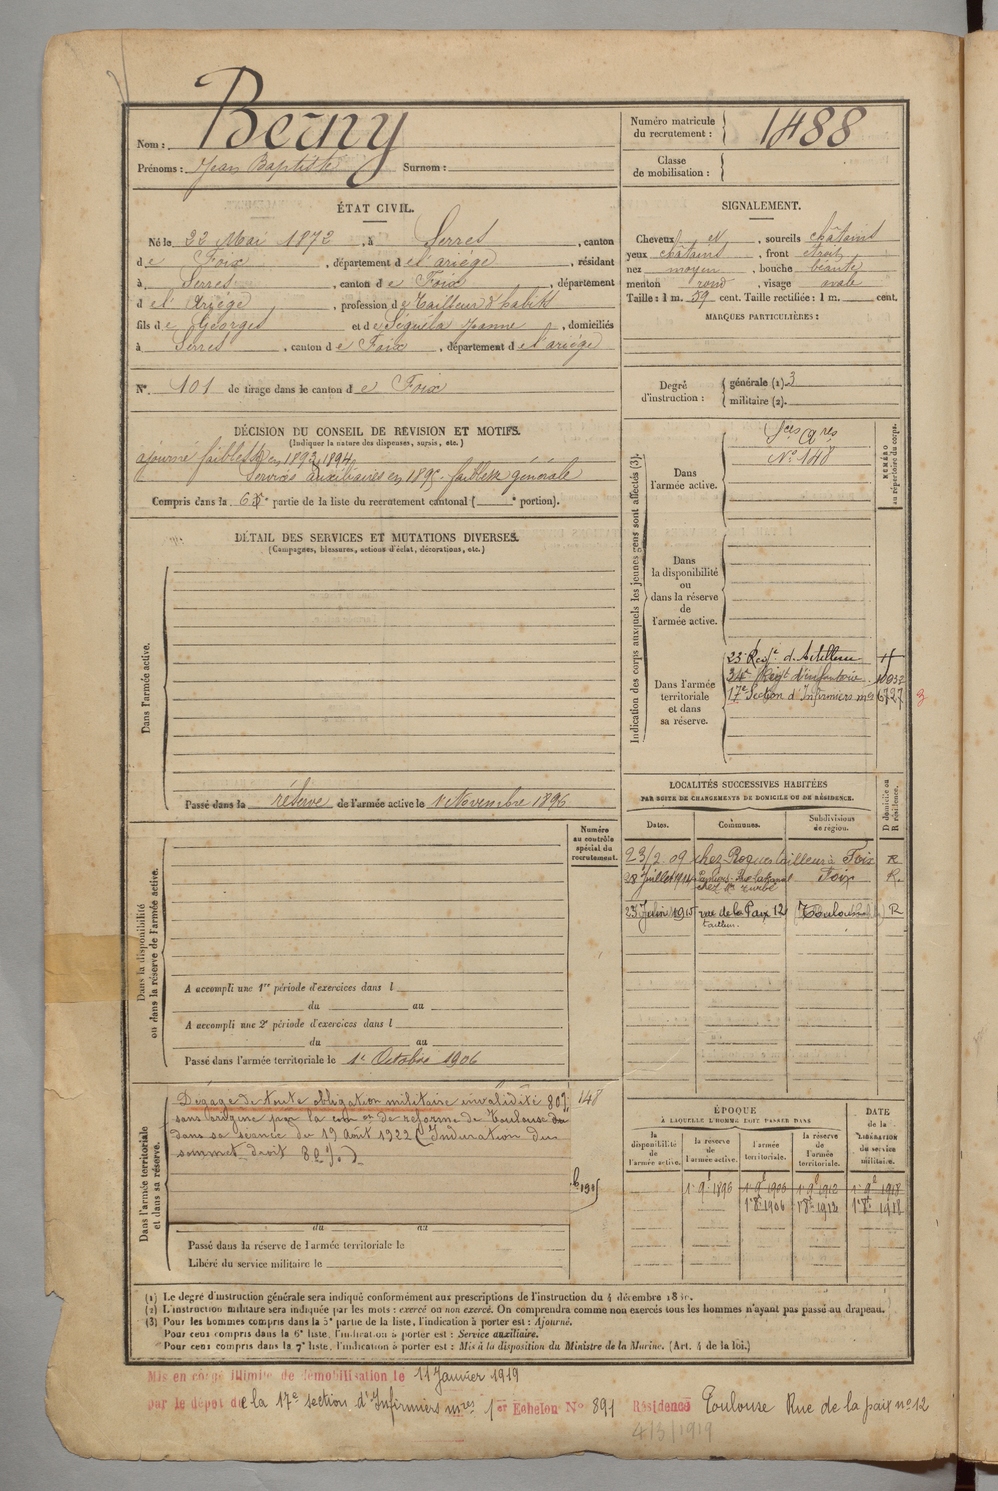 Nom : Berny
Prénoms : Jean Baptiste Surnom :
Numéro matricule du recrutement : 1488
Classe de mobilisation :
ÉTAT CIVIL.
Né le 22 Mai 1872, à Serres, canton
de Foix, département de l'ariège, résidant
à Serres, canton de Foix, département
de l'Ariège, profession de Tailleur d'habits
fils de Georges et de Séguéla Jeanne, domiciliés
à Serres, canton de Foix, département de l'ariège
N°. 101 de tirage dans le canton de Foix
SIGNALEMENT.
Cheveux N, sourcils châtains
yeux châtains, front étroit
nez moyen, bouche béante
menton rond, visage ovale
Taille : 1 m. 59 cent. Taille rectifiée : 1 m. cent.
MARQUES PARTICULIÈRES :
Degré d'instruction : générale (1). 3
militaire (2).
DÉCISION DU CONSEIL DE RÉVISION ET MOTIFS.
(Indiquer la nature des dispenses, sursis, etc.)
ajourné faiblesse en 1893, 1894
Services auxiliaires en 1895 - faiblesse générale
Compris dans la 6e partie de la liste du recrutement cantonal ( e portion).
DÉTAIL DES SERVICES ET MUTATIONS DIVERSES.
(Campagnes, blessures, actions d'éclat, décorations, etc.)
Dans l'armée active.
Passé dans la réserve de l'armée active le 1r Novembre 1896
Indication des corps auxquels les jeunes gens sont affectés (3).
NUMÉRO au répertoire du corps.
Dans l'armée active.
Sces Ares
N° 148
Dans la disponibilité ou dans la réserve de l'armée active.
Dans l'armée territoriale et dans sa réserve.
23e Regt d'Artillerie
34e Regt d'infanterie. 10032
17e Section d'Infirmiers mres 6727 3
LOCALITÉS SUCCESSIVES HABITÉES
PAR SUITE DE CHANGEMENTS DE DOMICILE OU DE RÉSIDENCE.
Dates. Communes. Subdivisions de région. D domicile ou R résidence.
23/2 09 chez Roques tailleur à Foix R
28 Juillet 1914 Pamiers - Rue Lakanal Foix R.
chez Mr
23 Juin 1915 rue de la Paix 12 Toulouse R
tailleur.
Numéro au contrôle spécial du recrutement.
Dans la disponibilité ou dans la réserve de l'armée active.
A accompli une 1re période d'exercices dans l
du au
A accompli une 2e période d'exercices dans l
du au
Passé dans l'armée territoriale le 1r Octobre 1906
Dans l'armée territoriale et dans sa réserve.
Dégagé de toute obligation militaire invalidité 80%
sans origine par la com on de réforme de Toulouse
dans sa séance du 19 Août 1922 (Induration du
sommet droit 80%.)
148
du au
Passé dans la réserve de l'armée territoriale le
Libéré du service militaire le
ÉPOQUE
À LAQUELLE L'HOMME DOIT PASSER DANS
DATE de la LIBÉRATION du service militaire.
la disponibilité de l'armée active. la réserve de l'armée active. l'armée territoriale. la réserve de l'armée territoriale.
1r 9e 1896 1r 9e 1906 1r 9e 1912 1r 9e 1918
1r 8e 1906 1r 8e 1912 1r 8e 1918
(1) Le degré d'instruction générale sera indiqué conformément aux prescriptions de l'instruction du 4 décembre 18
(2) L'instruction militaire sera indiquée par les mots : exercé ou non exercé. On comprendra comme non exercés tous les hommes n'ayant pas passé au drapeau.
(3) Pour les hommes compris dans la 5e partie de la liste, l'indication à porter est : Ajourné.
Pour ceux compris dans la 6e liste, l'indication à porter est : Service auxiliaire.
Pour ceux compris dans la 7e liste, l'indication à porter est : Mis à la disposition du Ministre de la Marine. (Art. 4 de la loi.)
Mis en congé illimité de démobilisation le 11 Janvier 1919
par le dépôt de la 17e section d'Infirmiers mres 1er Echelon N° 891 Résidence Toulouse Rue de la paix n° 12
4/3/1919